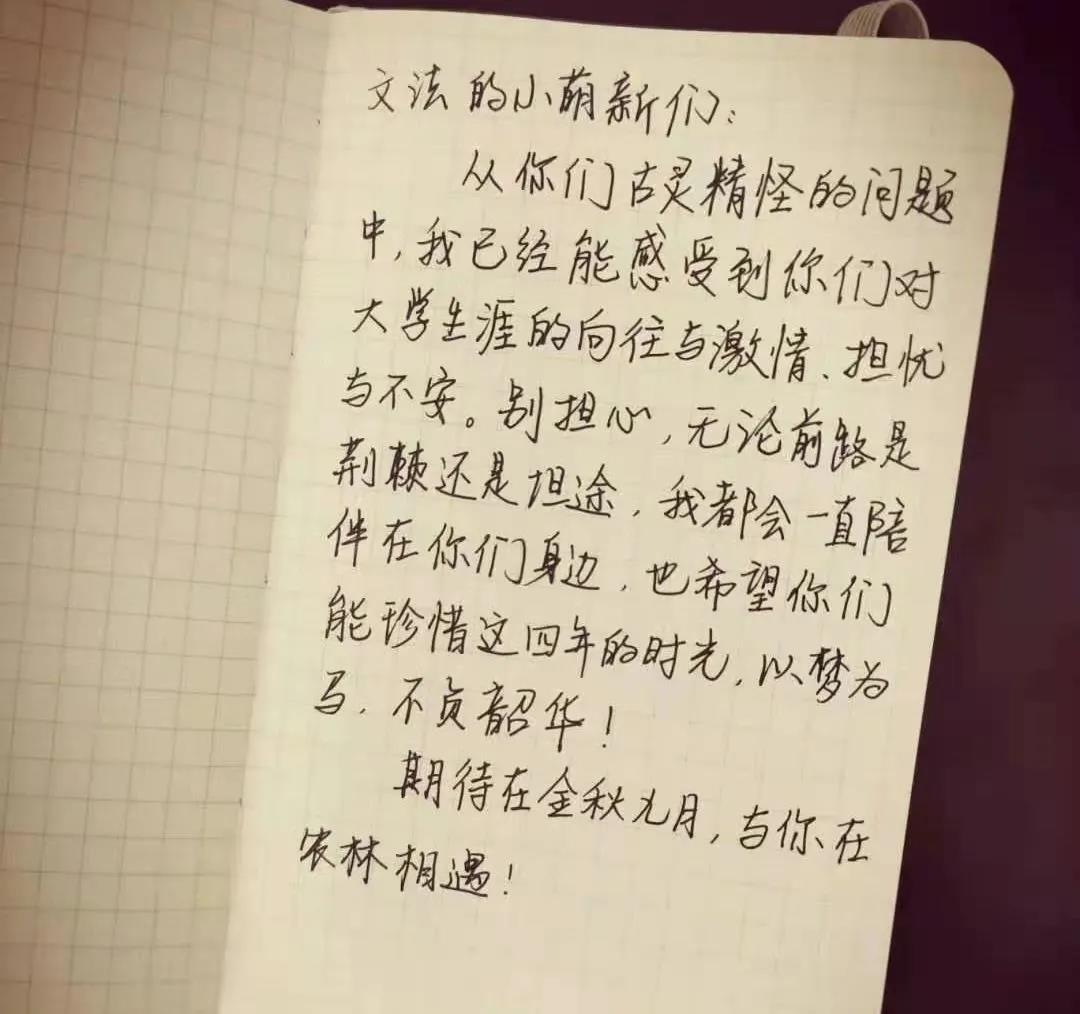 文法的小萌新们：
从你们古灵精怪的问题
中，我已经能感受到你们对
大学生涯的向往与激情、担忧
与不安。别担心，无论前路是
荆棘还是坦途，我都会一直陪
伴在你们身边，也希望你们
能珍惜这四年的时光，以梦为
马，不负韶华！
期待在金秋九月，与你在
农林相遇！